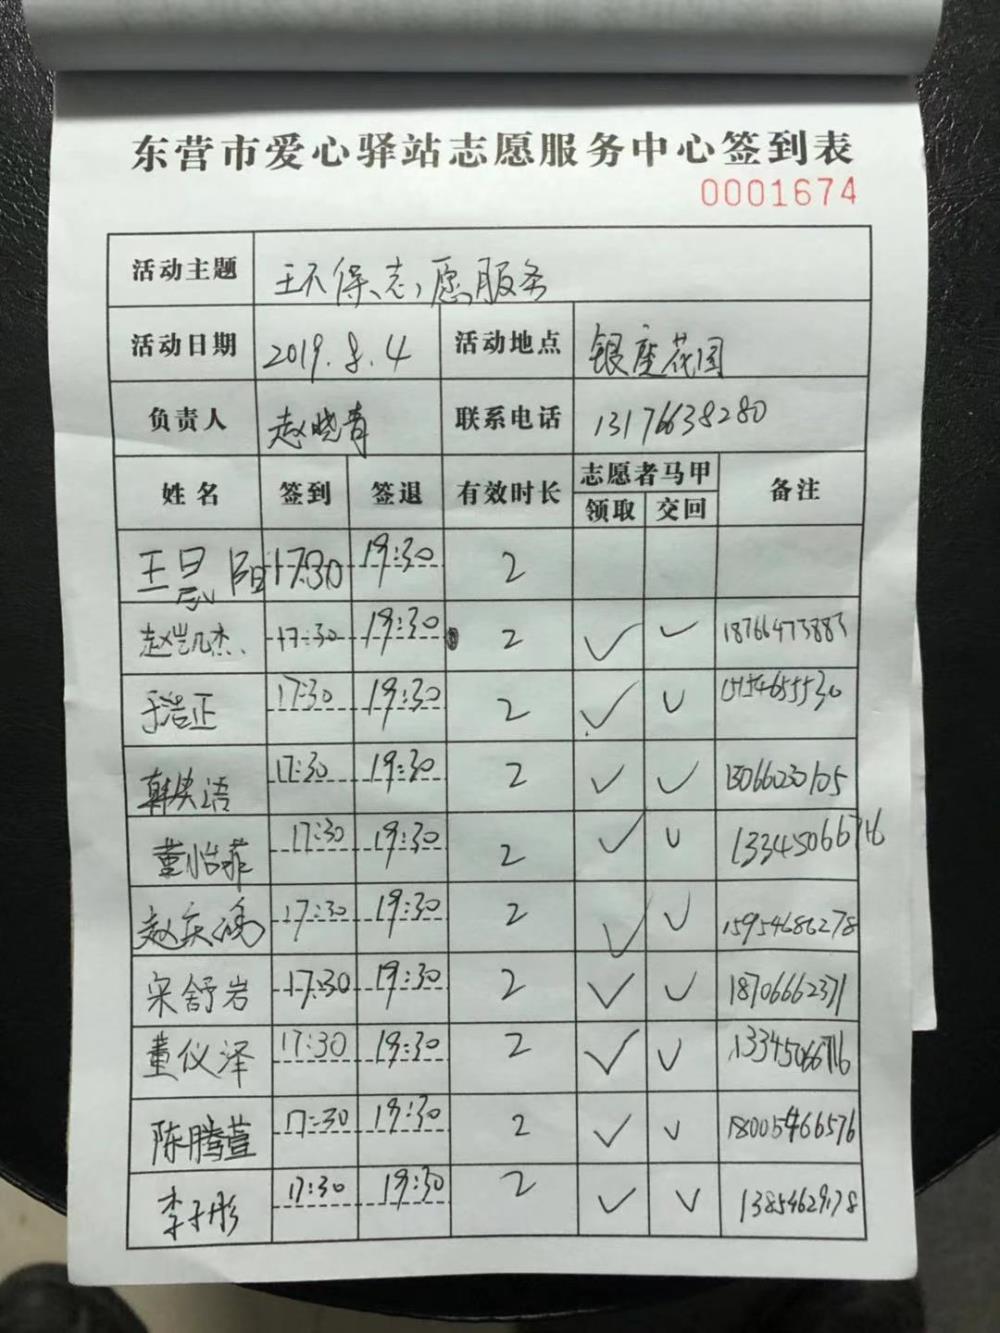 东营市爱心驿站志愿服务中心签到表
0001674
活动主题 环保志愿服务
活动日期 2019.8.4 活动地点 银座花园
负责人 赵晓青 联系电话 13176638280
姓名 签到 签退 有效时长 志愿者马甲 备注
领取 交回
王晨阳 17:30 19:30 2
赵凯杰 17:30 19:30 2 ✓ ✓ 18766473883
于浩正 17:30 19:30 2 ✓ ✓ 15154655530
17:30 19:30 2 ✓ ✓ 13066230105
董怡菲 17:30 19:30 2 ✓ ✓ 13345066716
17:30 19:30 2 ✓ ✓ 15954686278
宋舒岩 17:30 19:30 2 ✓ ✓ 18706662371
董仪泽 17:30 19:30 2 ✓ ✓ 13345066716
陈腾萱 17:30 19:30 2 ✓ ✓ 18005466576
李子彤 17:30 19:30 2 ✓ ✓